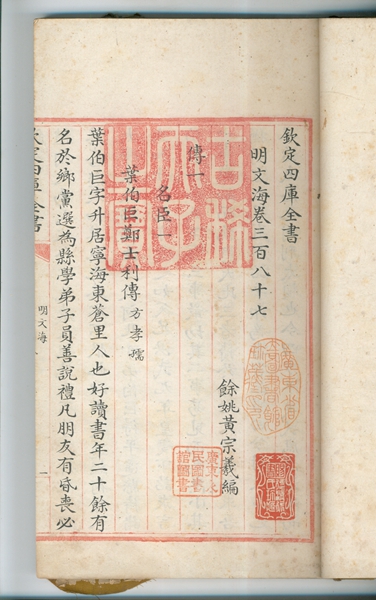 欽定四庫全書
明文海卷三百八十七
餘姚黃宗羲編
傳一
名臣一
葉伯巨鄭士利傳 方孝孺
葉伯巨字升居寧海東蒼里人也好讀書年二十餘有
名於鄉黨選為縣學弟子員善說禮凡朋友有昏喪必
欽定四庫全書
明文海
一
古稀天子之寶